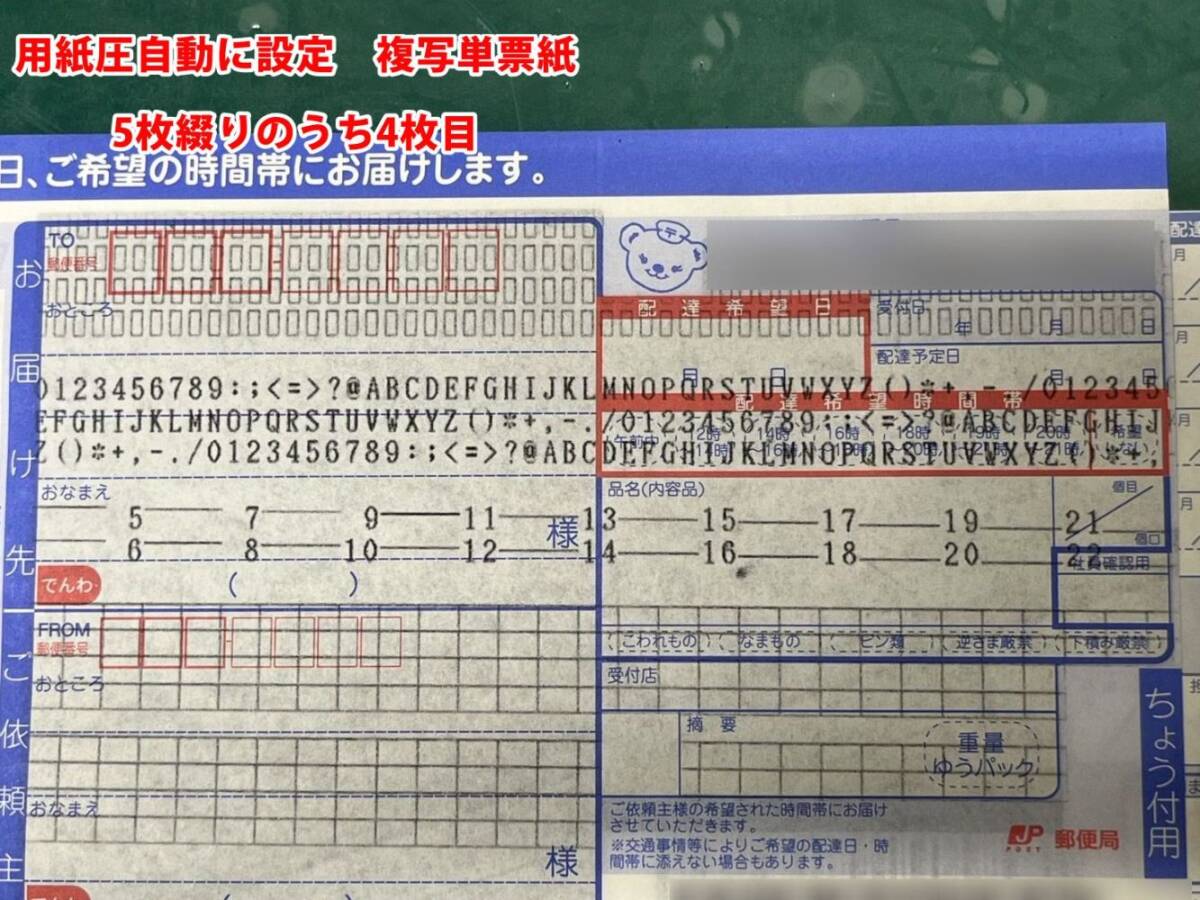 用紙圧自動に設定　複写単票紙
5枚綴りのうち4枚目
日、ご希望の時間帯にお届けします。
お届け先
TO
郵便番号
おところ
配達希望日
月 日
受付日
年 月 日
配達予定日
0123456789:;<=>?@ABCDEFGHIJKLMNOPQRSTUVWXYZ()*+,-./012345
配達希望時間帯
EFGHIJKLMNOPQRSTUVWXYZ()*+,-./0123456789:;<=>?@ABCDEFGHIJ
午前中 12時 14時 16時 18時 19時 20時 希望
Z()*+,-./0123456789:;<=>?@ABCDEFGHIJKLMNOPQRSTUVWXYZ()*+,
~14時 ~16時 ~18時 ~20時 ~21時 ~21時 なし
おなまえ
様
品名(内容品)
個目
個口
5 7 9 11 13 15 17 19 21
6 8 10 12 14 16 18 20 22
でんわ
( )
社員確認用
こわれもの なまもの ビン類 逆さま厳禁 下積み厳禁
ご依頼主
FROM
郵便番号
おところ
おなまえ
様
でんわ
受付店
摘要
重量
ゆうパック
ご依頼主様の希望された時間帯にお届け
させていただきます。
※交通事情等によりご希望の配達日・時
間帯に添えない場合もあります。
JP
POST
郵便局
ちょう付用
配達
月
月
月
月